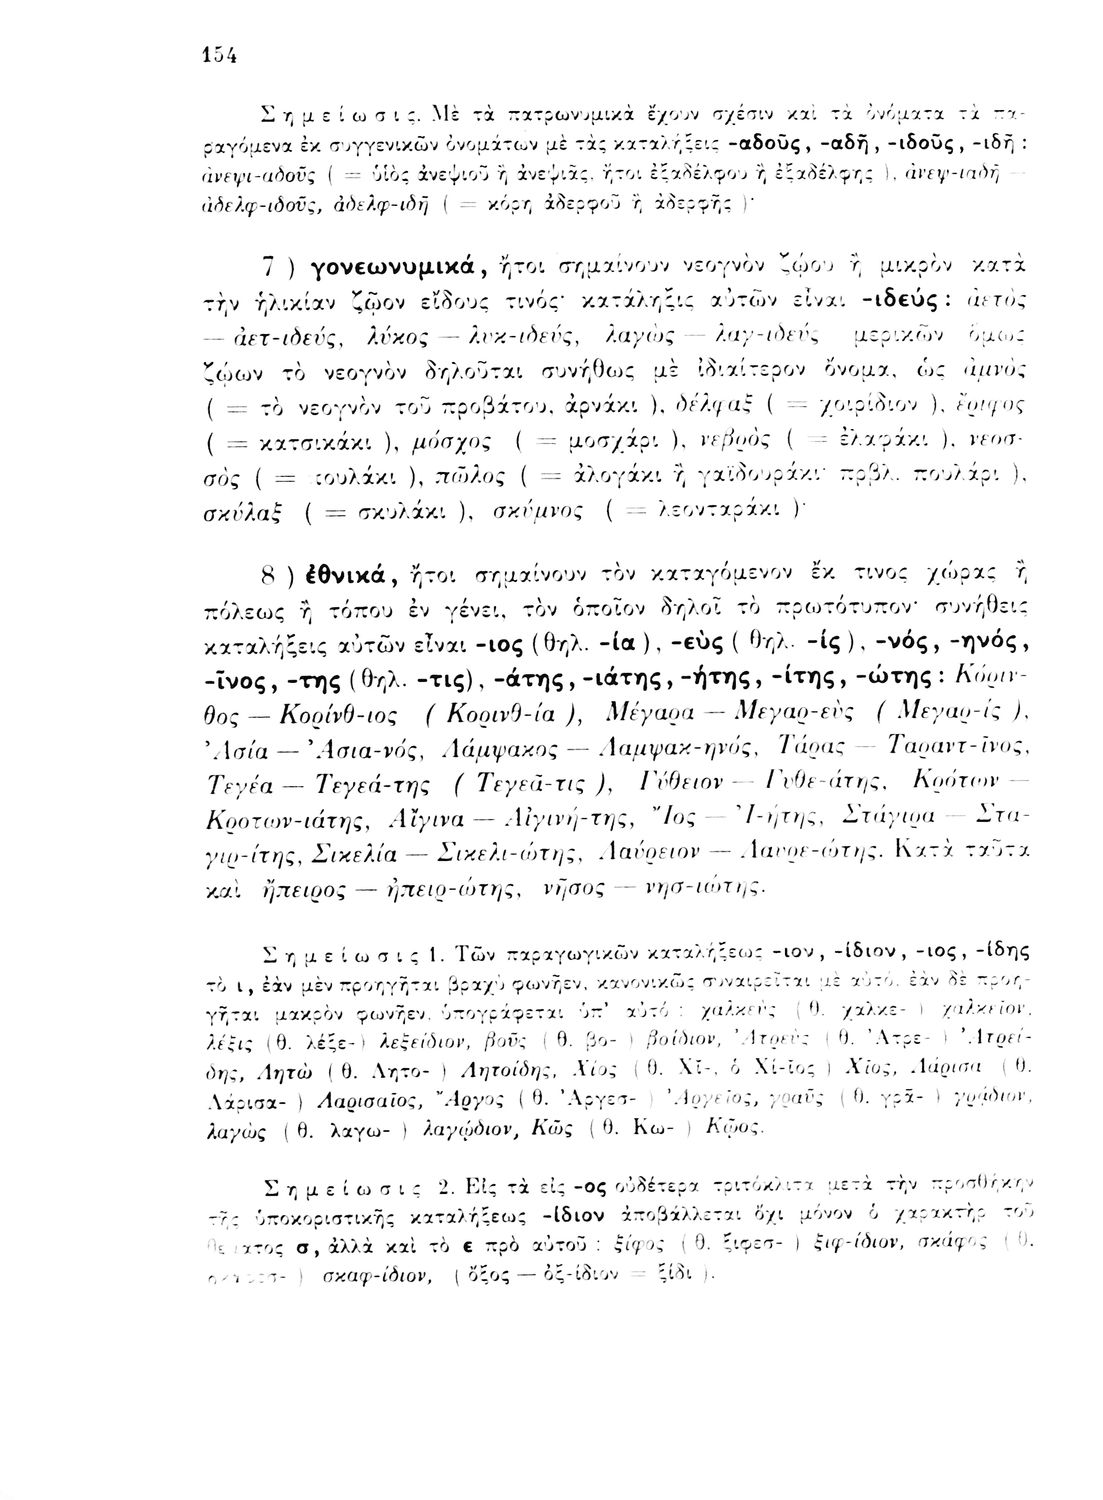 154
Σημείωσις. Μὲ τὰ πατρωνυμικὰ ἔχουν σχέσιν καὶ τὰ ὀνόματα τὰ πα-
ραγόμενα ἐκ συγγενικῶν ὀνομάτων μὲ τὰς καταλήξεις -αδοῦς, -αδῆ, -ιδοῦς, -ιδῆ :
ἀνεψι-αδοῦς ( = υἱὸς ἀνεψιοῦ ἢ ἀνεψιᾶς, ἤτοι ἐξαδέλφου ἢ ἐξαδέλφης ), ἀνεψ-ιαδῆ —
ἀδελφ-ιδοῦς, ἀδελφ-ιδῆ ( = κόρη ἀδερφοῦ ἢ ἀδερφῆς )·
7 ) γονεωνυμικά, ἤτοι σημαίνουν νεογνὸν ζῴου ἢ μικρὸν κατὰ
τὴν ἡλικίαν ζῷον εἴδους τινός· κατάληξις αὐτῶν εἶναι -ιδεύς : ἀετὸς
— ἀετ-ιδεύς, λύκος — λυκ-ιδεύς, λαγὼς — λαγ-ιδεύς μερικῶν ὅμως
ζῴων τὸ νεογνὸν δηλοῦται συνήθως μὲ ἰδιαίτερον ὄνομα, ὡς ἀμνὸς
( = τὸ νεογνὸν τοῦ προβάτου, ἀρνάκι ), δέλφαξ ( = χοιρίδιον ), ἔριφος
( = κατσικάκι ), μόσχος ( = μοσχάρι ), νεβρὸς ( = ἐλαφάκι ), νεοσ-
σὸς ( = πουλάκι ), πῶλος ( = ἀλογάκι ἢ γαϊδουράκι· πρβλ. πουλάρι ),
σκύλαξ ( = σκυλάκι ), σκύμνος ( = λεονταράκι )·
8 ) ἐθνικά, ἤτοι σημαίνουν τὸν καταγόμενον ἔκ τινος χώρας ἢ
πόλεως ἢ τόπου ἐν γένει, τὸν ὁποῖον δηλοῖ τὸ πρωτότυπον· συνήθεις
καταλήξεις αὐτῶν εἶναι -ιος (θηλ. -ία ), -εὺς ( θηλ. -ίς ), -νός, -ηνός,
-ῖνος, -της (θηλ. -τις), -άτης, -ιάτης, -ήτης, -ίτης, -ώτης : Κόριν-
θος — Κορίνθ-ιος ( Κορινθ-ία ), Μέγαρα — Μεγαρ-εὺς ( Μεγαρ-ίς ),
Ἀσία — Ἀσια-νός, Λάμψακος — Λαμψακ-ηνός, Τάρας — Ταραντ-ῖνος,
Τεγέα — Τεγεά-της ( Τεγεᾶ-τις ), Γύθειον — Γυθε-άτης, Κρότων —
Κροτων-ιάτης, Αἴγινα — Αἰγινή-της, Ἴος — Ἰ-ήτης, Στάγιρα — Στα-
γιρ-ίτης, Σικελία — Σικελι-ώτης, Λαύρειον — Λαυρε-ώτης. Κατὰ ταῦτα
καὶ ἤπειρος — ἠπειρ-ώτης, νῆσος — νησ-ιώτης.
Σημείωσις 1. Τῶν παραγωγικῶν καταλήξεως -ιον, -ίδιον, -ιος, -ίδης
τὸ ι, ἐὰν μὲν προηγῆται βραχὺ φωνῆεν, κανονικῶς συναιρεῖται μὲ αὐτό, ἐὰν δὲ προη-
γῆται μακρὸν φωνῆεν, ὑπογράφεται ὑπ’ αὐτό : χαλκεὺς ( θ. χαλκε- ) χαλκεῖον,
λέξις (θ. λέξε-) λεξείδιον, βοῦς ( θ. βο- ) βοίδιον, Ἀτρεὺς ( θ. Ἀτρε- ) Ἀτρεί-
δης, Λητὼ ( θ. Λητο- ) Λητοίδης, Χίος ( θ. Χῐ-, ὁ Χί-ιος ) Χῖος, Λάρισα ( θ.
Λάρισα- ) Λαρισαῖος, Ἄργος ( θ. Ἀργεσ- ) Ἀργεῖος, γραῦς ( θ. γρᾱ- ) γρᾴδιον,
λαγὼς ( θ. λαγω- ) λαγῴδιον, Κῶς ( θ. Κω- ) Κῷος.
Σημείωσις 2. Εἰς τὰ εἰς -ος οὐδέτερα τριτόκλιτα μετὰ τὴν προσθήκην
τῆς ὑποκοριστικῆς καταλήξεως -ίδιον ἀποβάλλεται ὄχι μόνον ὁ χαρακτὴρ τοῦ
θέματος σ, ἀλλὰ καὶ τὸ ε πρὸ αὐτοῦ : ξίφος ( θ. ξιφεσ- ) ξιφ-ίδιον, σκάφος ( θ.
σκαφεσ- ) σκαφ-ίδιον, ( ὄξος — ὀξ-ίδιον = ξίδι ).